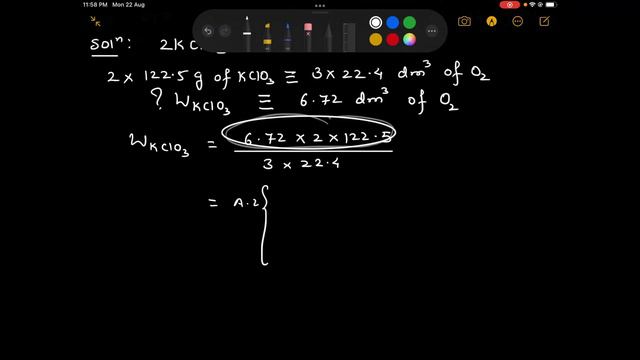 11:58 PM Mon 22 Aug
Solⁿ: 2KCl
2 x 122.5 g of KClO₃ ≡ 3 x 22.4 dm³ of O₂
? W KClO₃ ≡ 6.72 dm³ of O₂
W KClO₃ = 6.72 x 2 x 122.5
3 x 22.4
= A.2 {